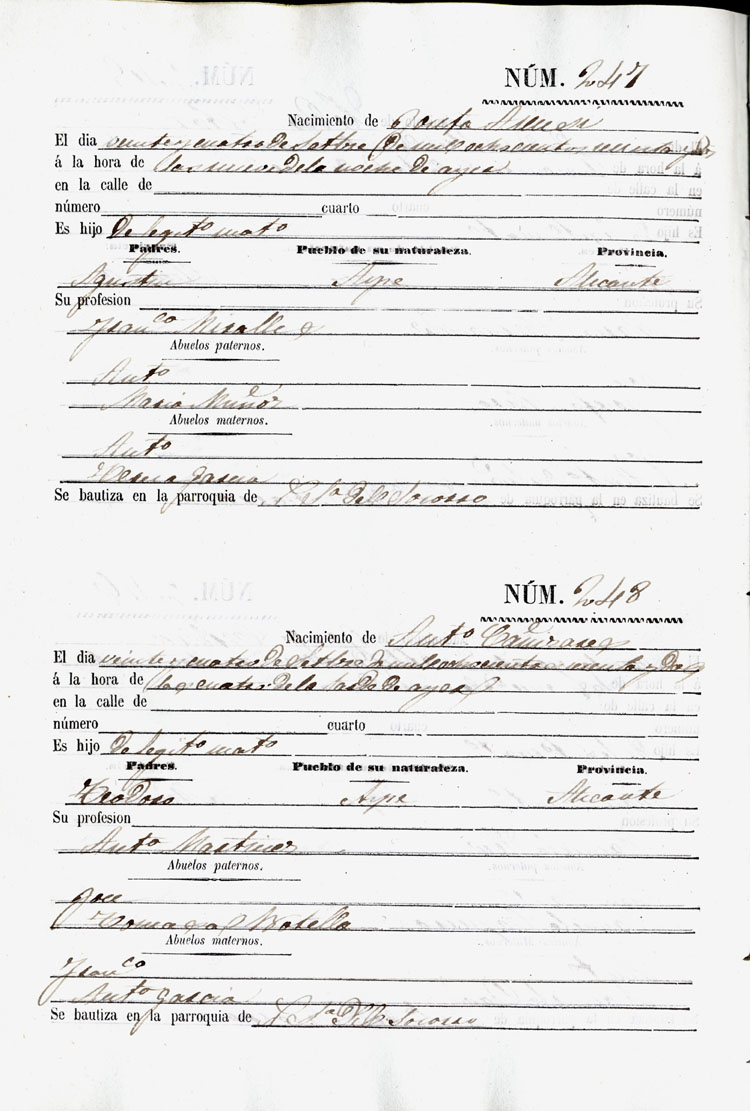 NÚM. 247
Nacimiento de
El dia veinte y cuatro de Settbre de mil ochocientos
á la hora de las nueve de la noche de ayer
en la calle de
número cuarto
Es hijo de legito mato
Padres. Pueblo de su naturaleza. Provincia.
Agustin Aspe Alicante
Su profesion
Franco Miralles
Abuelos paternos.
Anto
Maria Muñoz
Abuelos maternos.
Anto
Teresa Garcia
Se bautiza en la parroquia de Socorro
NÚM. 248
Nacimiento de Anto Cañizares
El dia veinte y cuatro de Settbre mil ochocientos y dos
á la hora de las cuatro de la tarde de ayer
en la calle de
número cuarto
Es hijo de legito mato
Padres. Pueblo de su naturaleza. Provincia.
Teodoro Aspe Alicante
Su profesion
Anta Martinez
Abuelos paternos.
Jose
Tomasa Botella
Abuelos maternos.
Franco
Anta Garcia
Se bautiza en la parroquia de Socorro